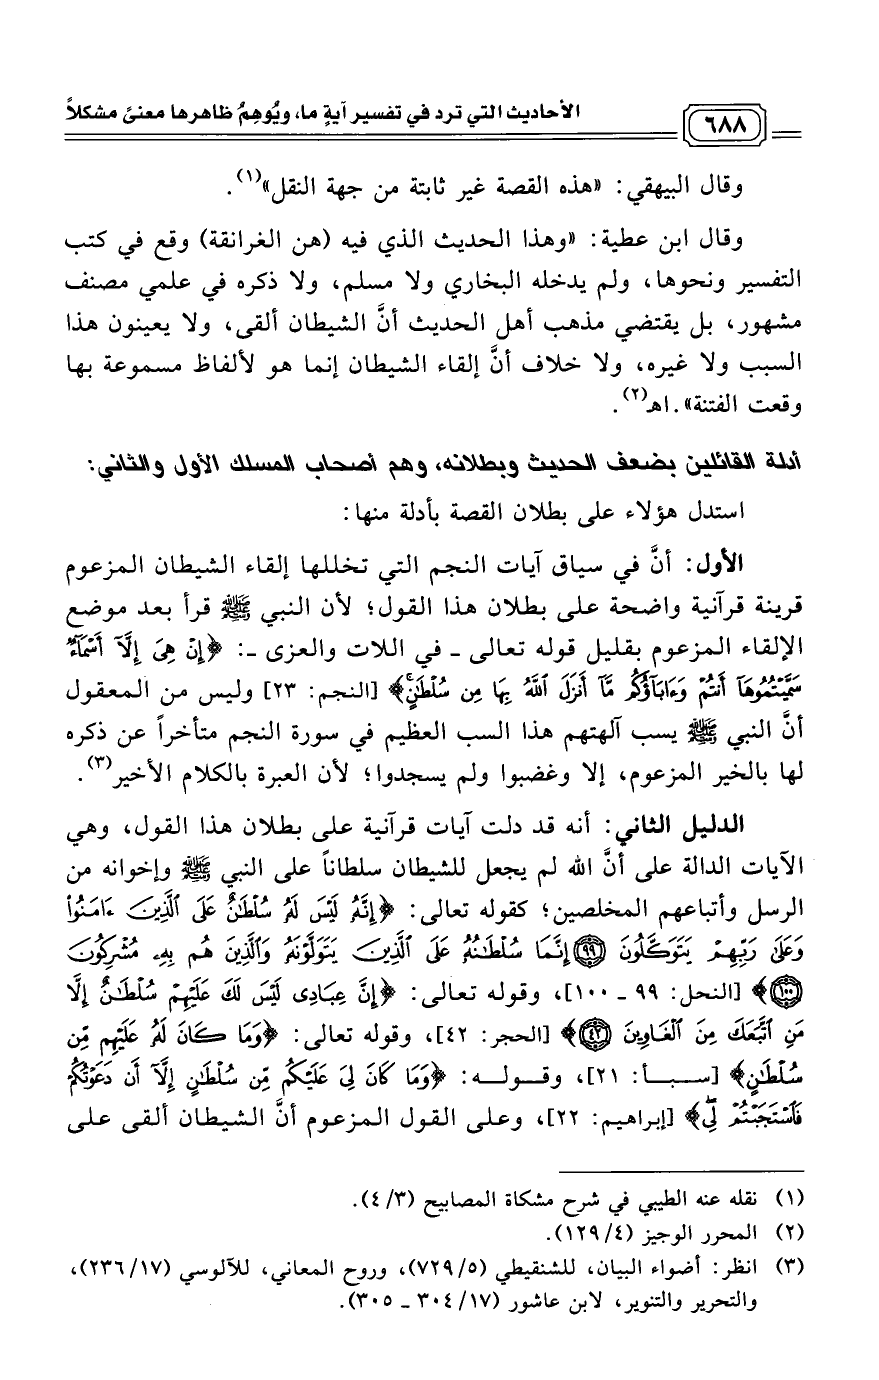 الأحاديث التي ترد في تفسير آيةٍ ما، ويُوهِمُ ظاهرها معنىً مشكلاً
٦٨٨
وقال البيهقي: «هذه القصة غير ثابتة من جهة النقل»(١).
وقال ابن عطية: «وهذا الحديث الذي فيه (هن الغرانقة) وقع في كتب
التفسير ونحوها، ولم يدخله البخاري ولا مسلم، ولا ذكره في علمي مصنف
مشهور، بل يقتضي مذهب أهل الحديث أنَّ الشيطان ألقى، ولا يعينون هذا
السبب ولا غيره، ولا خلاف أنَّ إلقاء الشيطان إنما هو لألفاظ مسموعة بها
وقعت الفتنة».اهـ(٢).
أدلة القائلين بضعف الحديث وبطلانه، وهم أصحاب المسلك الأول والثاني:
استدل هؤلاء على بطلان القصة بأدلة منها:
الأول: أنَّ في سياق آيات النجم التي تخللها إلقاء الشيطان المزعوم
قرينة قرآنية واضحة على بطلان هذا القول؛ لأن النبي ﷺ قرأ بعد موضع
الإلقاء المزعوم بقليل قوله تعالى ـ في اللات والعزى ـ: ﴿إِنْ هِيَ إِلَّآ أَسْمَآءٌ
سَمَّيْتُمُوهَآ أَنتُمْ وَءَابَآؤُكُم مَّآ أَنزَلَ ٱللَّهُ بِهَا مِن سُلْطَـٰنٍ﴾ [النجم: ٢٣] وليس من المعقول
أنَّ النبي ﷺ يسب آلهتهم هذا السب العظيم في سورة النجم متأخراً عن ذكره
لها بالخير المزعوم، إلا وغضبوا ولم يسجدوا؛ لأن العبرة بالكلام الأخير(٣).
الدليل الثاني: أنه قد دلت آيات قرآنية على بطلان هذا القول، وهي
الآيات الدالة على أنَّ الله لم يجعل للشيطان سلطاناً على النبي ﷺ وإخوانه من
الرسل وأتباعهم المخلصين؛ كقوله تعالى: ﴿إِنَّهُۥ لَيْسَ لَهُۥ سُلْطَـٰنٌ عَلَى ٱلَّذِينَ ءَامَنُوا۟
وَعَلَىٰ رَبِّهِمْ يَتَوَكَّلُونَ ۝٩٩ إِنَّمَا سُلْطَـٰنُهُۥ عَلَى ٱلَّذِينَ يَتَوَلَّوْنَهُۥ وَٱلَّذِينَ هُم بِهِۦ مُشْرِكُونَ
۝١٠٠﴾ [النحل: ٩٩ ـ ١٠٠]، وقوله تعالى: ﴿إِنَّ عِبَادِى لَيْسَ لَكَ عَلَيْهِمْ سُلْطَـٰنٌ إِلَّا
مَنِ ٱتَّبَعَكَ مِنَ ٱلْغَاوِينَ ۝٤٢﴾ [الحجر: ٤٢]، وقوله تعالى: ﴿وَمَا كَانَ لَهُۥ عَلَيْهِم مِّن
سُلْطَـٰنٍ﴾ [سـبـأ: ٢١]، وقـولـه: ﴿وَمَا كَانَ لِىَ عَلَيْكُم مِّن سُلْطَـٰنٍ إِلَّآ أَن دَعَوْتُكُمْ
فَٱسْتَجَبْتُمْ لِى﴾ [إبراهيم: ٢٢]، وعلى القول المزعوم أنَّ الشيطان ألقى على
(١) نقله عنه الطيبي في شرح مشكاة المصابيح (٤/٣).
(٢) المحرر الوجيز (١٢٩/٤).
(٣) انظر: أضواء البيان، للشنقيطي (٧٢٩/٥)، وروح المعاني، للآلوسي (٢٣٦/١٧)،
والتحرير والتنوير، لابن عاشور (٣٠٤/١٧ ـ ٣٠٥).